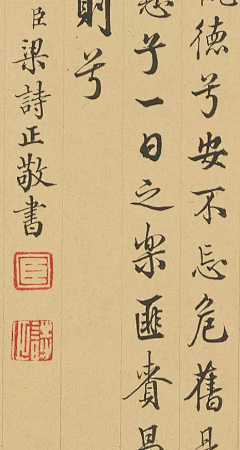 德兮安不忘危舊
兮一日之樂匪賚
則兮
臣梁詩正敬書
臣
詩正